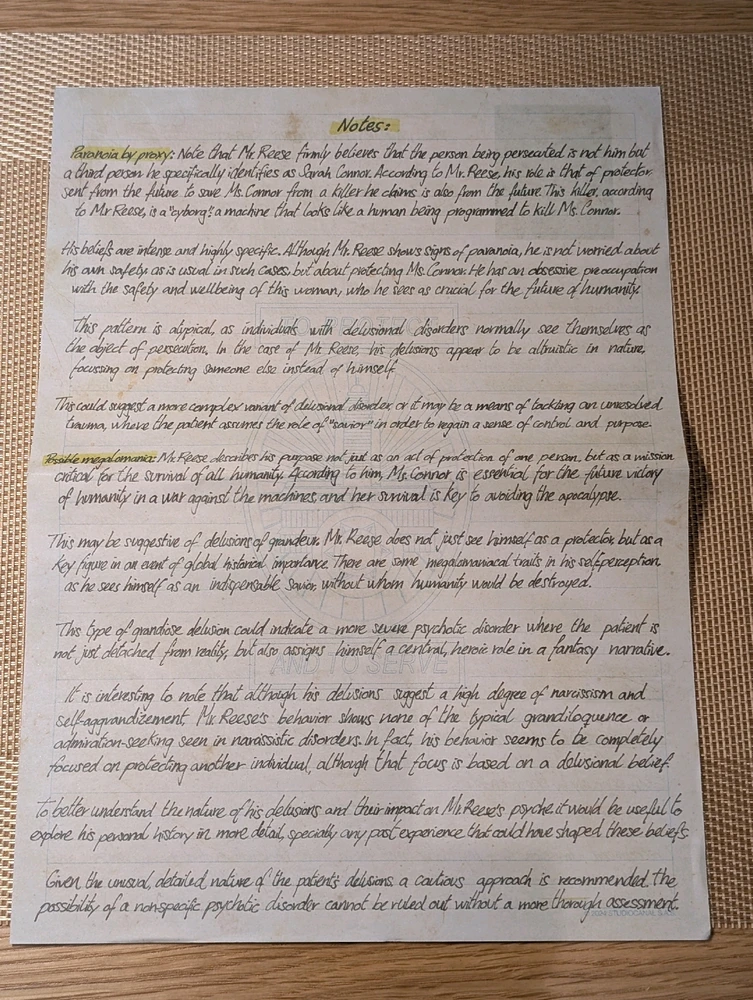 Notes:
Paranoia by proxy: Note that Mr. Reese firmly believes that the person being persecuted is not him but
a third person he specifically identifies as Sarah Connor. According to Mr. Reese, his role is that of protector,
sent from the future to save Ms. Connor from a killer he claims is also from the future. This killer, according
to Mr Reese, is a "cyborg", a machine that looks like a human being programmed to kill Ms. Connor.
His beliefs are intense and highly specific. Although Mr. Reese shows signs of paranoia, he is not worried about
his own safety, as is usual in such cases, but about protecting Ms. Connor. He has an obsessive preoccupation
with the safety and wellbeing of this woman, who he sees as crucial for the future of humanity.
This pattern is atypical, as individuals with delusional disorders normally see themselves as
the object of persecution. In the case of Mr. Reese, his delusions appear to be altruistic in nature,
focussing on protecting someone else instead of himself.
This could suggest a more complex variant of delusional disorder, or it may be a means of tackling an unresolved
trauma, where the patient assumes the role of "savior" in order to regain a sense of control and purpose.
Possible megalomania: Mr. Reese describes his purpose not just as an act of protection of one person, but as a mission
critical for the survival of all humanity. According to him, Ms. Connor is essential for the future victory
of humanity in a war against the machines, and her survival is key to avoiding the apocalypse.
This may be suggestive of delusions of grandeur. Mr. Reese does not just see himself as a protector, but as a
key figure in an event of global historical importance. There are some megalomaniacal traits in his self-perception,
as he sees himself as an indispensable savior, without whom humanity would be destroyed.
This type of grandiose delusion could indicate a more severe psychotic disorder where the patient is
not just detached from reality, but also assigns himself a central, heroic role in a fantasy narrative.
AND TO SERVE
It is interesting to note that although his delusions suggest a high degree of narcissism and
self-aggrandizement Mr. Reese's behavior shows none of the typical grandiloquence or
admiration-seeking seen in narassistic disorders. In fact, his behavior seems to be completely
focused on protecting another individual, although that focus is based on a delusional belief.
To better understand the nature of his delusions and their impact on Mr. Reese's psyche it would be useful to
explore his personal history in more detail, specially any past experience that could have shaped these beliefs.
Given the unusual, detailed nature of the patient's delusions, a cautious approach is recommended, the
possibility of a non-specific psychotic disorder cannot be ruled out without a more thorough assessment.